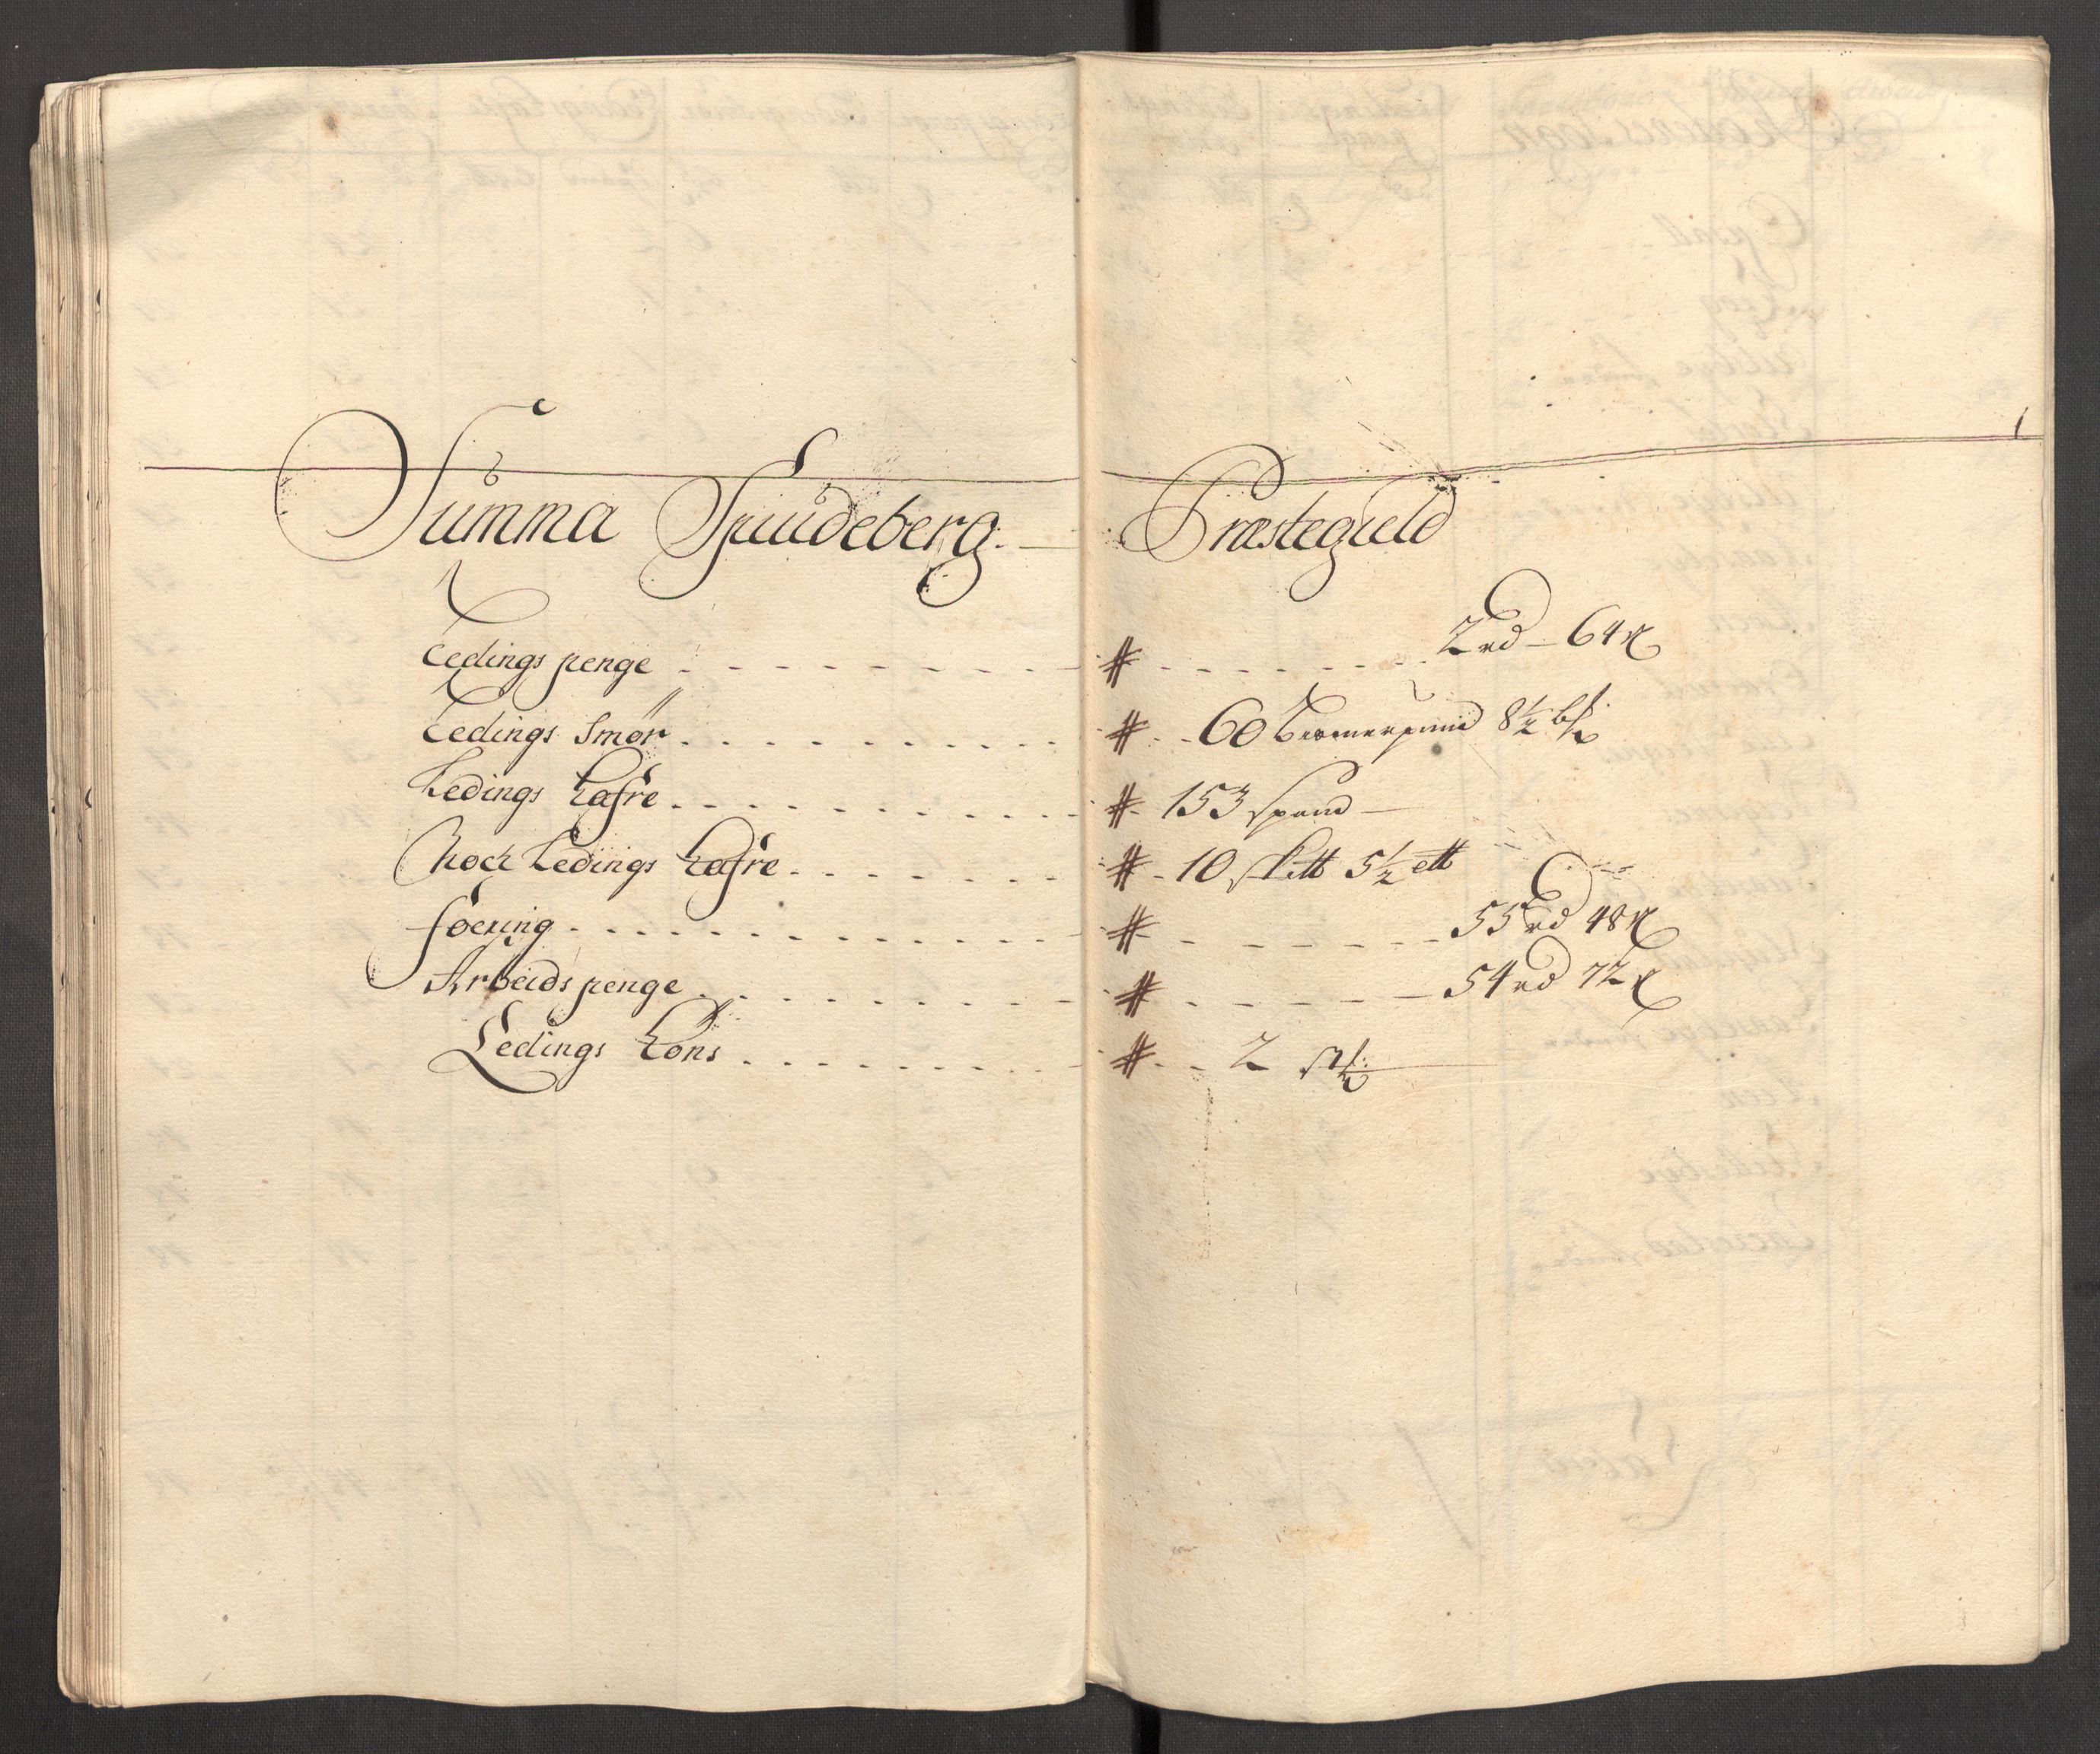 Summa Spudeberg. Præstegield
Ledings penge # 2 rd 64 ß
Ledings Smör # 60 Bismerpund 8½
Ledings hafre # 153 spand
Noch Ledings hafre # 10 5½ ett
foering # 55 rd 48 ß
Arbeids penge # 54 rd 72 ß
Ledings # 2